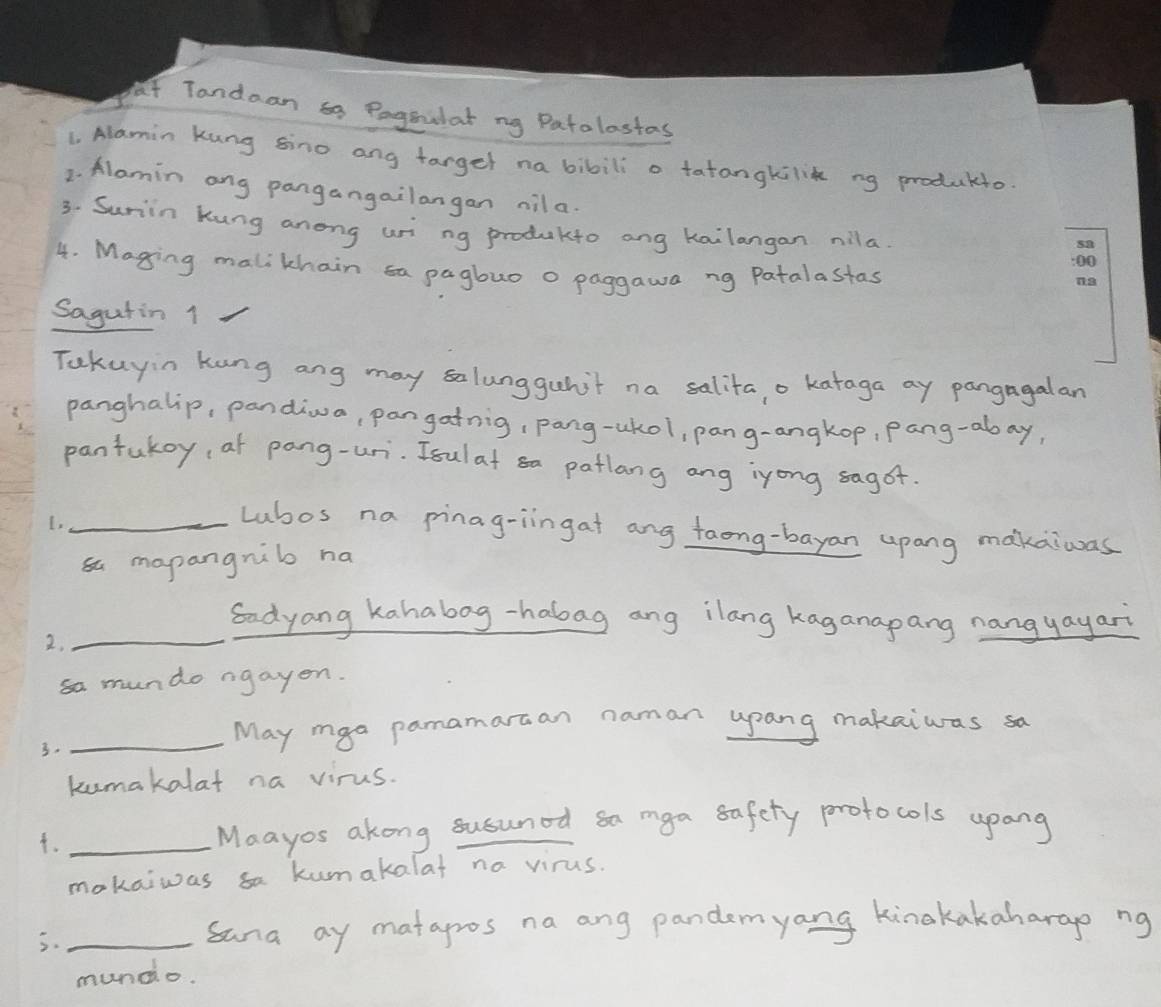 pat Tandaan sa Pagsulat ng Patalastas
1. Alamin kung sino ang target na bibili o tatangkilik ng produkto.
2. Alamin ang pangangailangan nila.
3. Suriin kung anong uri ng produkto ang kailangan nila.
4. Maging malikhain sa pagbuo o paggawa ng Patalastas
sa
:00
na
Sagutin 1 ✓
Tukuyin kung ang may salungguhit na salita, o kataga ay pangngalan
panghalip, pandiwa, pangatnig, pang-ukol, pang-angkop, pang-abay,
pantukoy, at pang-uri. Isulat sa patlang ang iyong sagot.
1. ________ Lubos na pinag-iingat ang taong-bayan upang makaiwas
sa mapangnib na
2. ________ Sadyang kahabag-habag ang ilang kaganapang nangyayari
sa mundo ngayon.
3. ________ May mga pamamaraan naman upang makaiwas sa
kumakalat na virus.
4. ________ Maayos akong susunod sa mga safety protocols upang
makaiwas sa kumakalat na virus.
5. ________ Sana ay matapos na ang pandemyang kinakakaharap ng
mundo.